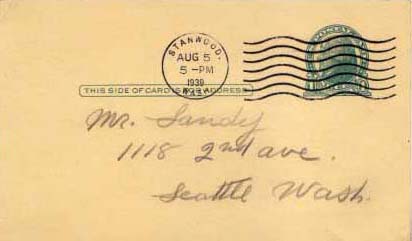 STANWOOD,
AUG 5
5-PM
1939
WASH.
THIS SIDE OF CARD IS FOR ADDRESS
Mr. Sandy
1118 2nd ave.
Seattle Wash.